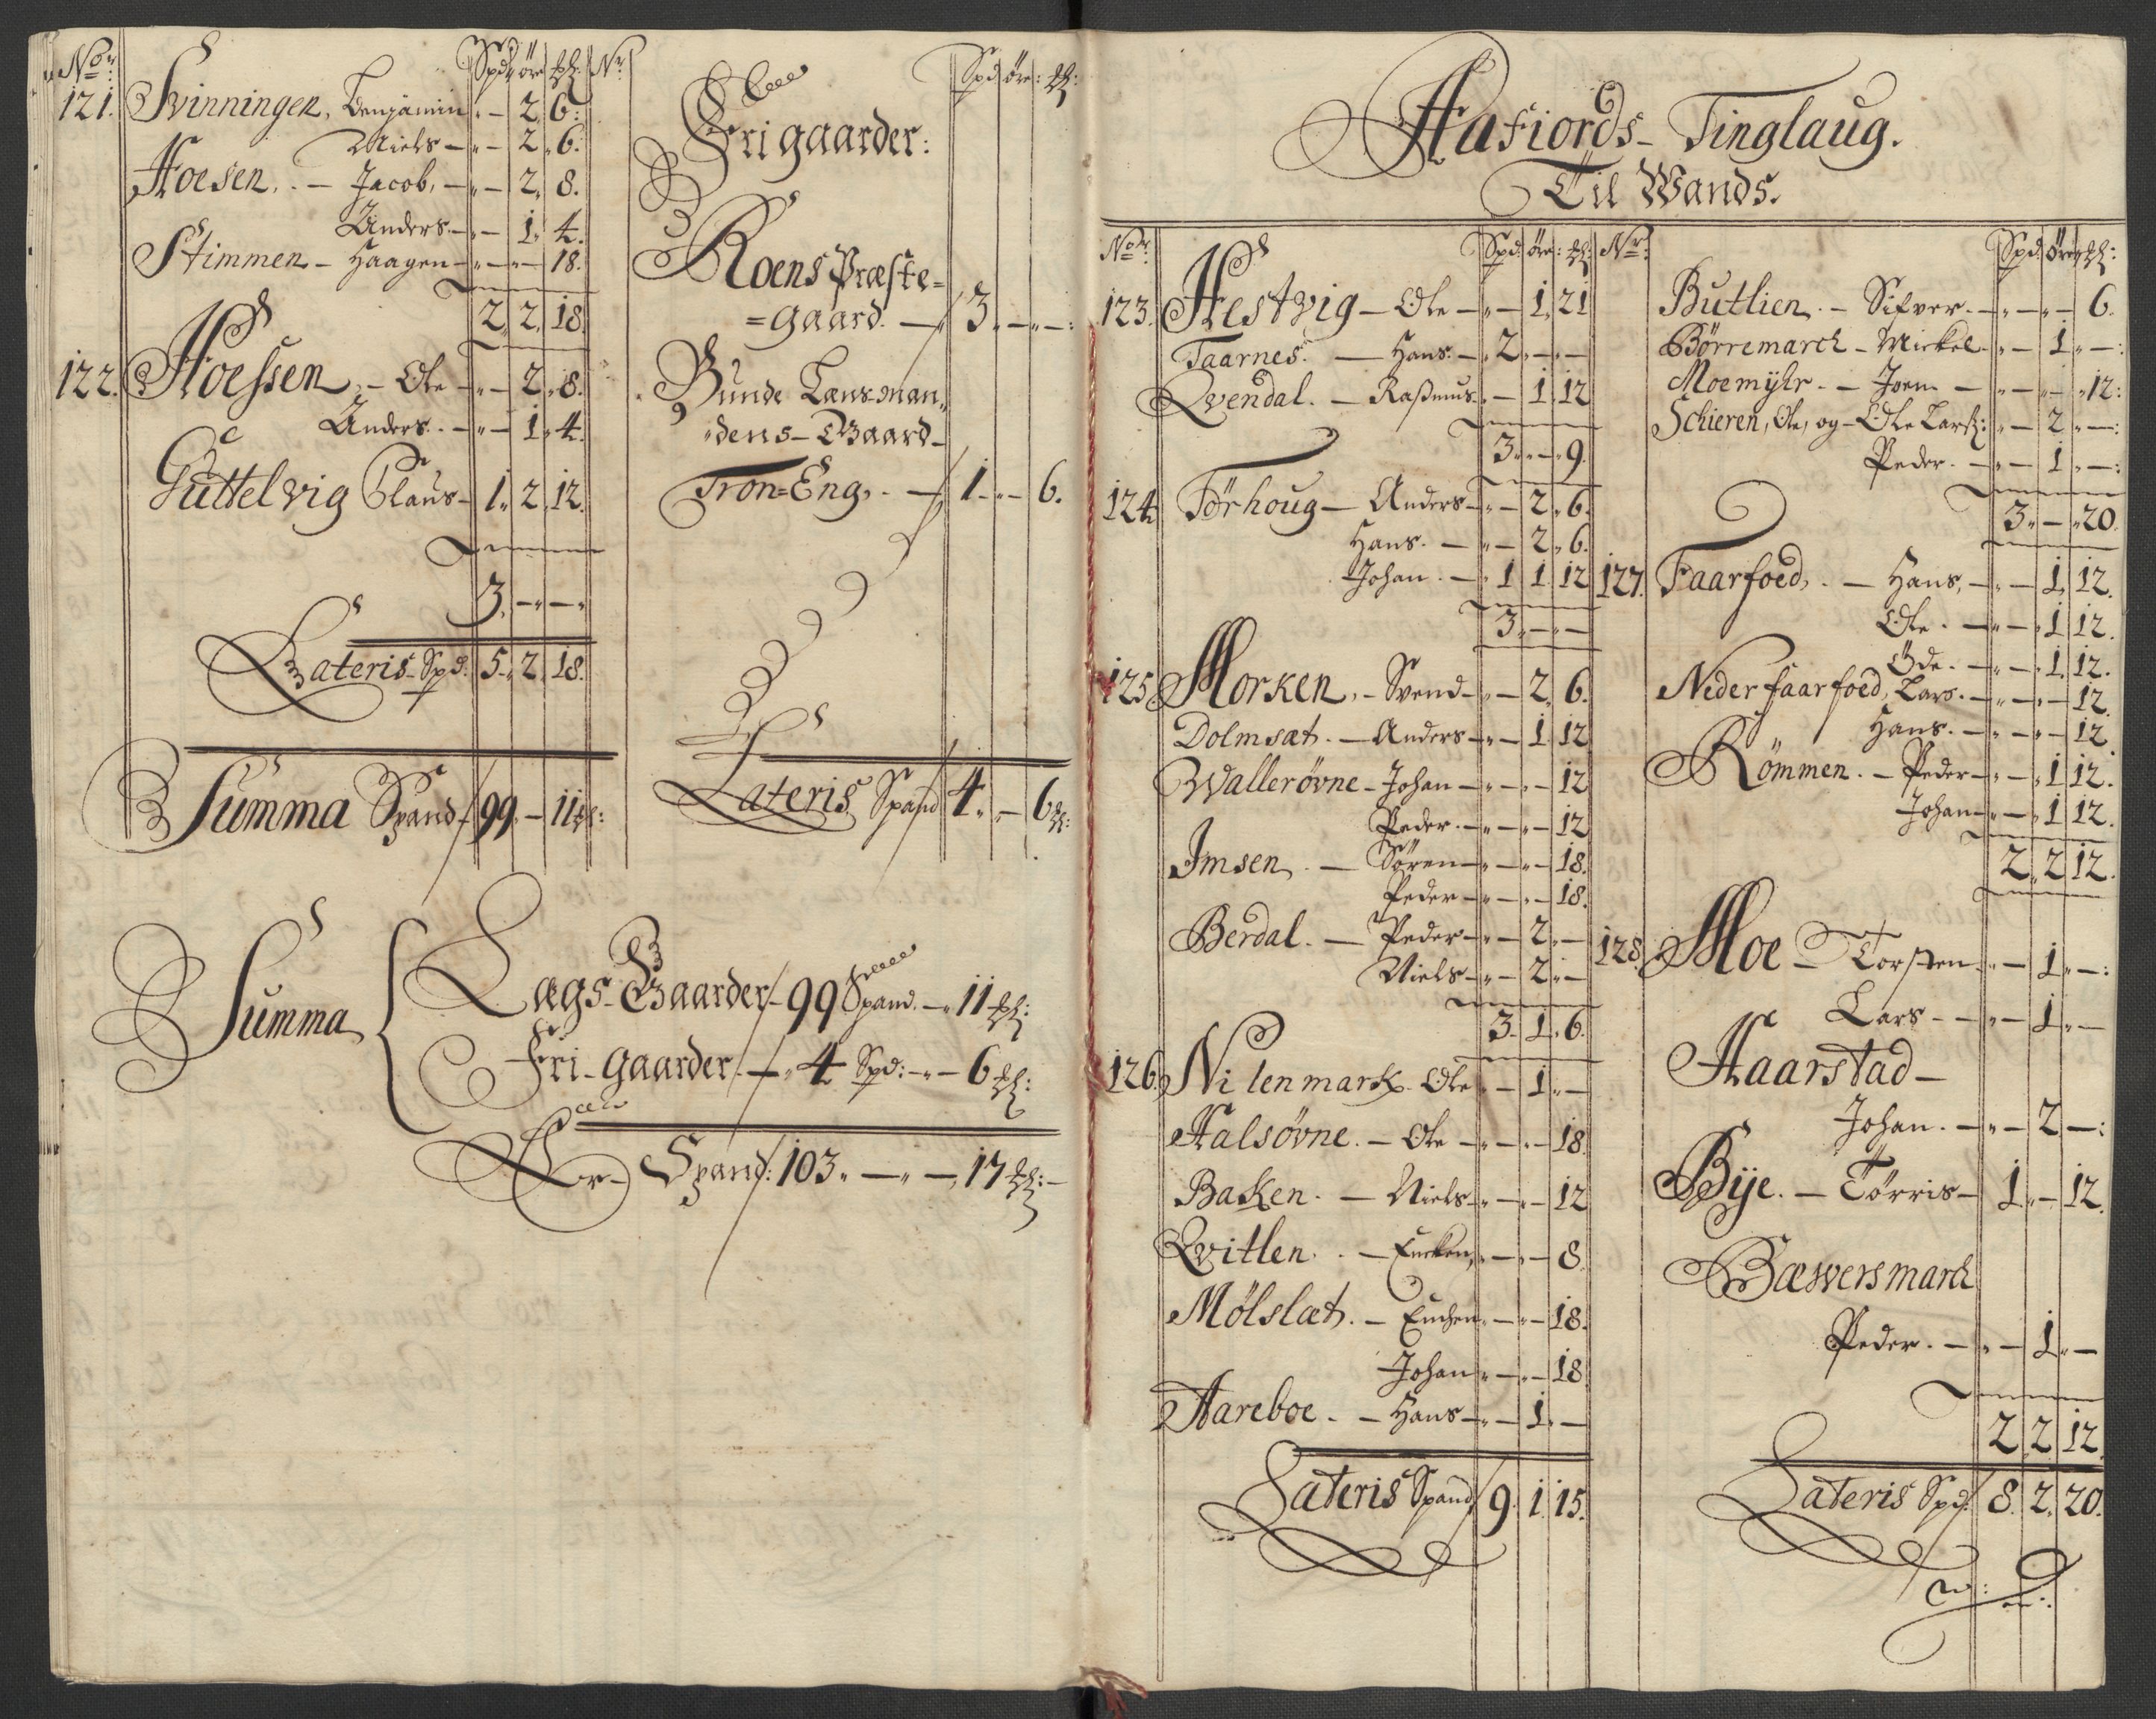 No: Spd: öre ⅌: Nr:
121. Svinningen, Benjamin " — 2. 6:
Niels — " — 2. 6.
Hoesen. — Jacob, — " — 2. 8.
Anders. — " — 1. 4.
Stimmen — Haagen — " — " — 18.
2. 2. 18.
122. Hoessen, — Ole — " — 2. 8.
Anders. — " — 1. 4.
Guttelvig Claus — 1. 2. 12.
3. — " — "
Lateris Spd: 5. 2. 18.
Summa Spand 99. — 11
Spd: öre:
Frigaarder:
Roens Præste=
=gaard. — 3. — " — :
Bunde Lensman„
„dens — Gaard —
Tron=Eng, — 1. " — 6.
Lateris Spand 4. " — 6
Summa
Lægs — Gaarder — 99 Spand. — " 11
Fri — gaarder — " 4 Spd: — " — 6
Er — Spand: 103. — " — " 17
Aafiords — Tinglaug.
Til Wands.
No: Spd: öre:
123. Hestvig — Ole — " — 1. 21
Taarnes. — Hans. — " 2. " — " —
Qvendal. — Rasmus " — 1. 12
3. " — " 9.
124. Törhoug — Anders — " — 2. 6.
Hans. — " — 2. 6.
Johan. — " 1 1. 12
3. " — " —
125. Morken, — Svend — " — 2. 6.
Dolmsæt. — Anders — " — 1. 12
Wallerövne — Johan — " — " — 12
Peder. — " — " — 12
Imsen. — Sören — " — " — 18.
Peder — " — " — 18.
Berdal. — Peder — " — 2. " —
Niels — " — 2. " —
3. 1. 6.
126. Nilenmark Ole " — 1. " —
Halsövne. — Ole — " — " — 18.
Baken. — Niels — " — " — 12
Qvitlen. — " — " — 8.
Mölslæt. — Enchen " — " — 18.
Johan " — " — 18
Hareboe. — Hans — " — 1. " —
Lateris Spand 9. 1. 15.
Nr: Spd: öre:
Butlien. — Sifver. — " — " — 6.
Börremarch — Mickel " — 1. " — :
Moemyhr. — Joen — " — " — " 12:
Schieren, Ole, og — Ole Lars: " — 2. " — :
Peder. — " — 1. " — :
3. " — " 20.
127. Faarfoed, — Hans, — " — 1. 12.
Ole. — " — " 1. 12.
Ode. — " — " 1. 12.
Neder faarfoed, Lars. — " — " — 12.
Hans. — " — " — 12.
Römmen. — Peder — " — " 1. 12.
Johan — " — " 1. 12.
2. 2. 12.
128. Moe — Torsten " — 1. " — :
Lars — " — 1. " —
Haarstad —
Johan. — " — 2. — :
Bije. — Törris — 1. " — 12.
Bæwersmarch
Peder. — " — 1. " —
2. 2. 12.
Lateris Spd: 8. 2. 20.